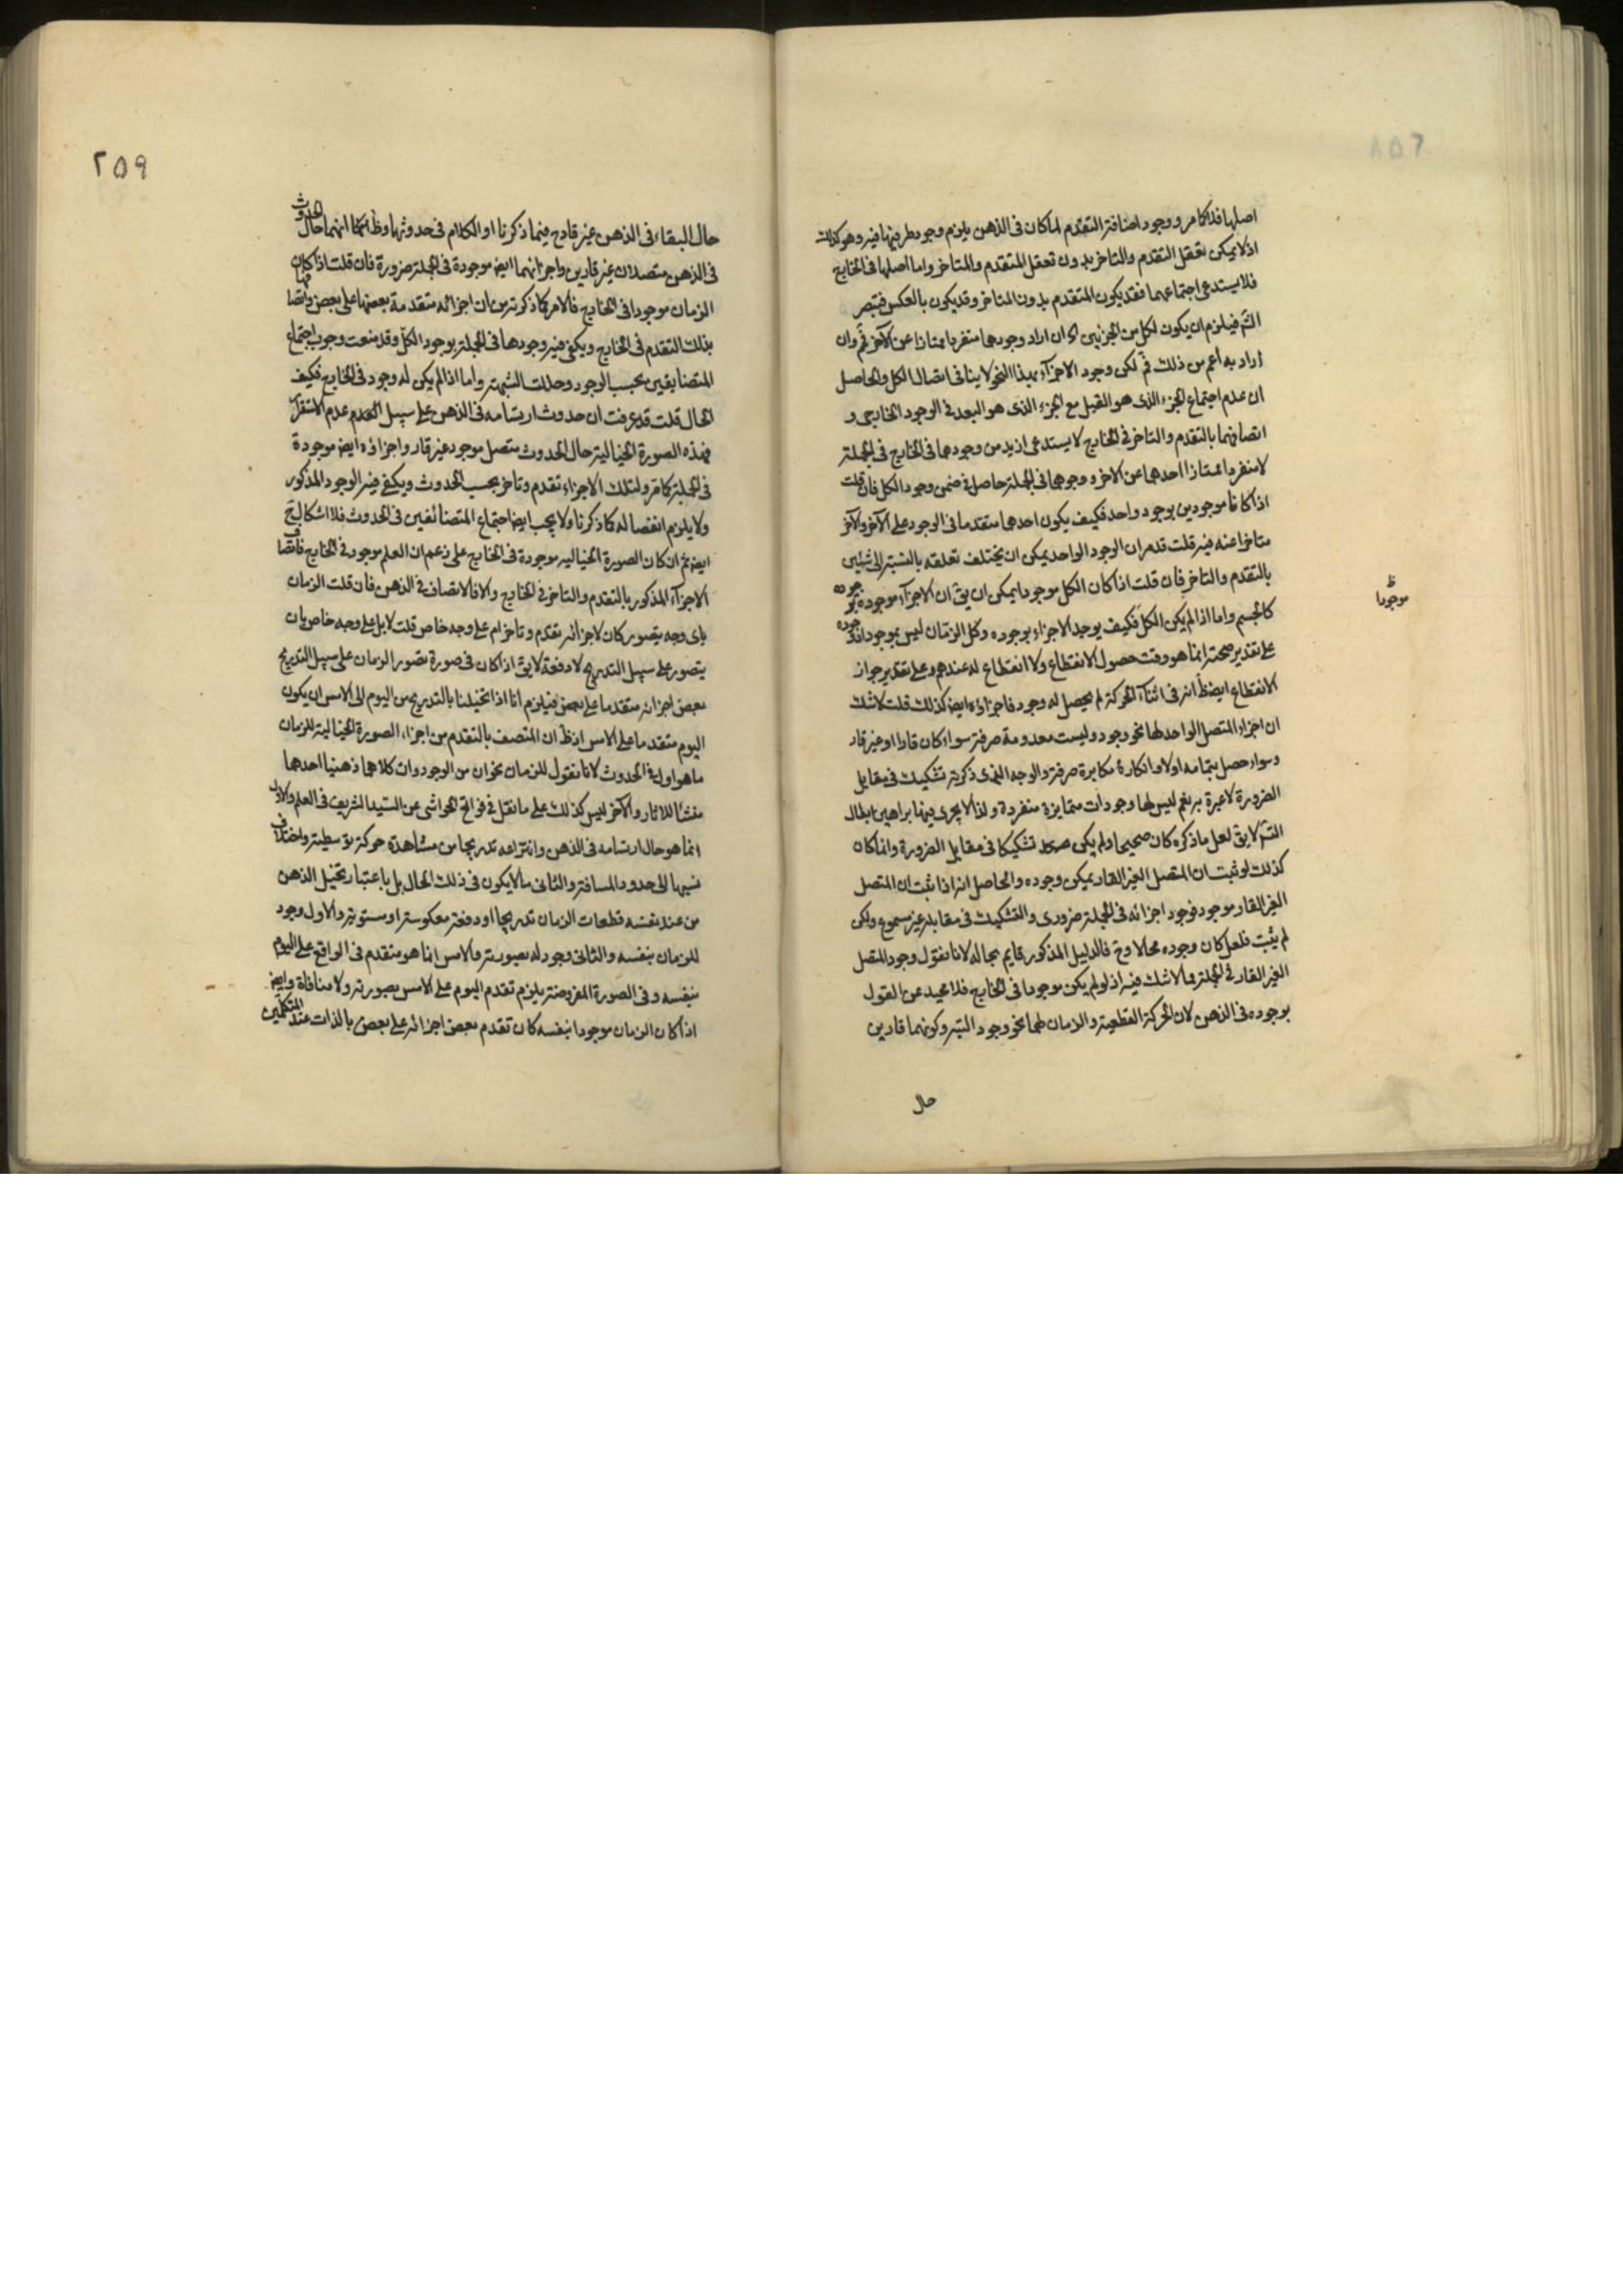 اصلها فذاكا مر ووجود اضافة التقدم لما كان فى الذهن يلزم وجود طرفيها فيه وهو كذلك
اذ لا يمكن تعقل التقدم والتاخر بدون تعقل المتقدم والمتاخر واما اصلها فى الخارج
فلا يستدعى اجتماعهما فقد يكون المتقدم بدون المتاخر وقد يكون بالعكس فتبصر
فيلزم ان يكون لكل من الجزئين ان اراد وجودهما متفردا ممتازا عن الآخر فم وان
اراد به اعم من ذلك فم لكن وجود الاجزآء بهذا النحو لا ينافى اتصال الكل والحاصل
ان عدم اجتماع الجزء الذى هو القبل مع الجزء الذى هو البعد فى الوجود الخارجى و
اتصافهما بالتقدم والتاخر فى الخارج لا يستدعى ازيد من وجودهما فى الخارج فى الجملة
لا منفردا ممتازا احدهما عن الاخر ووجودهما فى الجملة حاصل فى ضمن وجود الكل فان قلت
اذا كانا موجودين بوجود واحد فكيف يكون احدهما متقدما فى الوجود على الآخر والآخر
متاخرا عنه فيه قلت قد مر ان الوجود الواحد يمكن ان يختلف تعلقه بالنسبة الى شيئين
بالتقدم والتاخر فان قلت اذا كان الكل موجودا يمكن ان يق ان الاجزآء موجودة بوجوده
كالجسم واما اذا لم يكن الكل فكيف يوجد الاجزاء بوجوده وكل الزمان ليس بموجود اذ وجوده
على تقدير صحته انما هو وقت حصول الانقطاع ولا انقطاع له عندهم وعلى تقدير جواز
الانقطاع ايض ظ انه فى اثنآء الحركة لم يحصل له وجود فاجزاؤه ايض كذلك قلت لا شك
ان اجزاء المتصل الواحد لها نحو وجود وليست معدومة صرفة سواء كان قارا او غير قار
وسواء حصل بتمامه اولا وانكاره مكابرة صرفة والوجه الذى ذكرته تشكيك فى مقابل
الضرورة لا عبرة به نعم ليس لها وجودات متمايزة منفردة ولذا لا يجرى فيها براهين ابطال
التس لا يق لعل ما ذكره كان صحيحا ولم يكن تشكيكا فى مقابل الضرورة وانما كان
كذلك لو ثبت ان المتصل الغير القار يمكن وجوده والحاصل انه اذا ثبت ان المتصل
الغير القار موجود فوجود اجزائه فى الجملة ضرورى والتشكيك فى مقابله غير مسموع ولكن
لم يثبت فلعل كان وجوده محالا وح فالدليل المذكور قايم بحاله لانا نقول وجود المتصل
الغير القار فى الجملة مما لا شك فيه اذ لو لم يكن موجودا فى الخارج فلا محيد عن القول
بوجوده فى الذهن لان الحركة القطعية والزمان لهما نحو وجود البتة وكونهما قارين
حال
ظ
موجودا
٢٥٩
حال البقاء فى الذهن غير قادح فيما ذكرنا اذ الكلام فى حدوثهما وظ انهما حال الحدوث
فى الذهن متصلان غير قارين واجزائهما ايض موجودة فى الجملة ضرورة فان قلت اذا كان
الزمان موجودا فى الخارج فالامر كما ذكرته من ان اجزائه متقدمة بعضها على بعض واتصافها
بذلك التقدم فى الخارج ويكفى فيه وجودها فى الجملة بوجود الكل وقد منعت وجوب اجتماع
المتضايفين بحسب الوجود وحللت الشبهة واما اذا لم يكن له وجود فى الخارج فكيف
الحال قلت قد عرفت ان حدوث ارتسامه فى الذهن على سبيل عدم الاستقرار
فهذه الصورة الخيالية حال الحدوث متصل موجود غير قار واجزاؤه ايض موجودة
فى الجملة كما مر ولتلك الاجزاء تقدم وتاخر بحسب الحدوث ويكفى فيه الوجود المذكور
ولا يلزم انفصاله كما ذكرنا ولا يجب ايض اجتماع المتضائفين فى الحدوث فلا اشكال ح
ايض ثم ان كان الصورة الخيالية موجودة فى الخارج على زعم ان العلم موجود فى الخارج فاتصاف
الاجزآء المذكور بالتقدم والتاخر فى الخارج والا فالاتصاف فى الذهن فان قلت الزمان
باى وجه يتصور كان لاجزائه تقدم وتاخر ام على وجه خاص قلت لا بل على وجه خاص بان
يتصور على سبيل التدريج لا دفعة لا يق اذا كان فى صورة تصور الزمان على سبيل التدريج
بعض اجزائه متقدما على بعض فيلزم انا اذا تخيلنا بالتدريج من اليوم الى الامس ان يكون
اليوم متقدما على الامس اذ ظ ان المتصف بالتقدم من اجزاء الصورة الخيالية للزمان
ما هو اول فى الحدوث لانا نقول للزمان نحوان من الوجود وان كلاهما ذهنيا احدهما
منشأ للآثار والآخر ليس كذلك على ما نقل فى فواتح الحواشى عن السيد الشريف فى العلم والاول
انما هو حال ارتسامه فى الذهن وانتزاعه تدريجا من مشاهدة حركة توسطية واختلاف
نسبها الى حدود المسافة والثانى ما لا يكون فى ذلك الحال بل باعتبار تخيل الذهن
من عند نفسه قطعات الزمان تدريجا او دفعة معكوسة او مستوية والاول وجود
للزمان بنفسه والثانى وجود له بصورته والامس انما هو متقدم فى الواقع على اليوم
بنفسه وفى الصورة المفروضة يلزم تقدم اليوم على الامس بصورته ولا منافاة وايض
اذا كان الزمان موجودا بنفسه كان تقدم بعض اجزائه على بعض بالذات عند المتكلمين